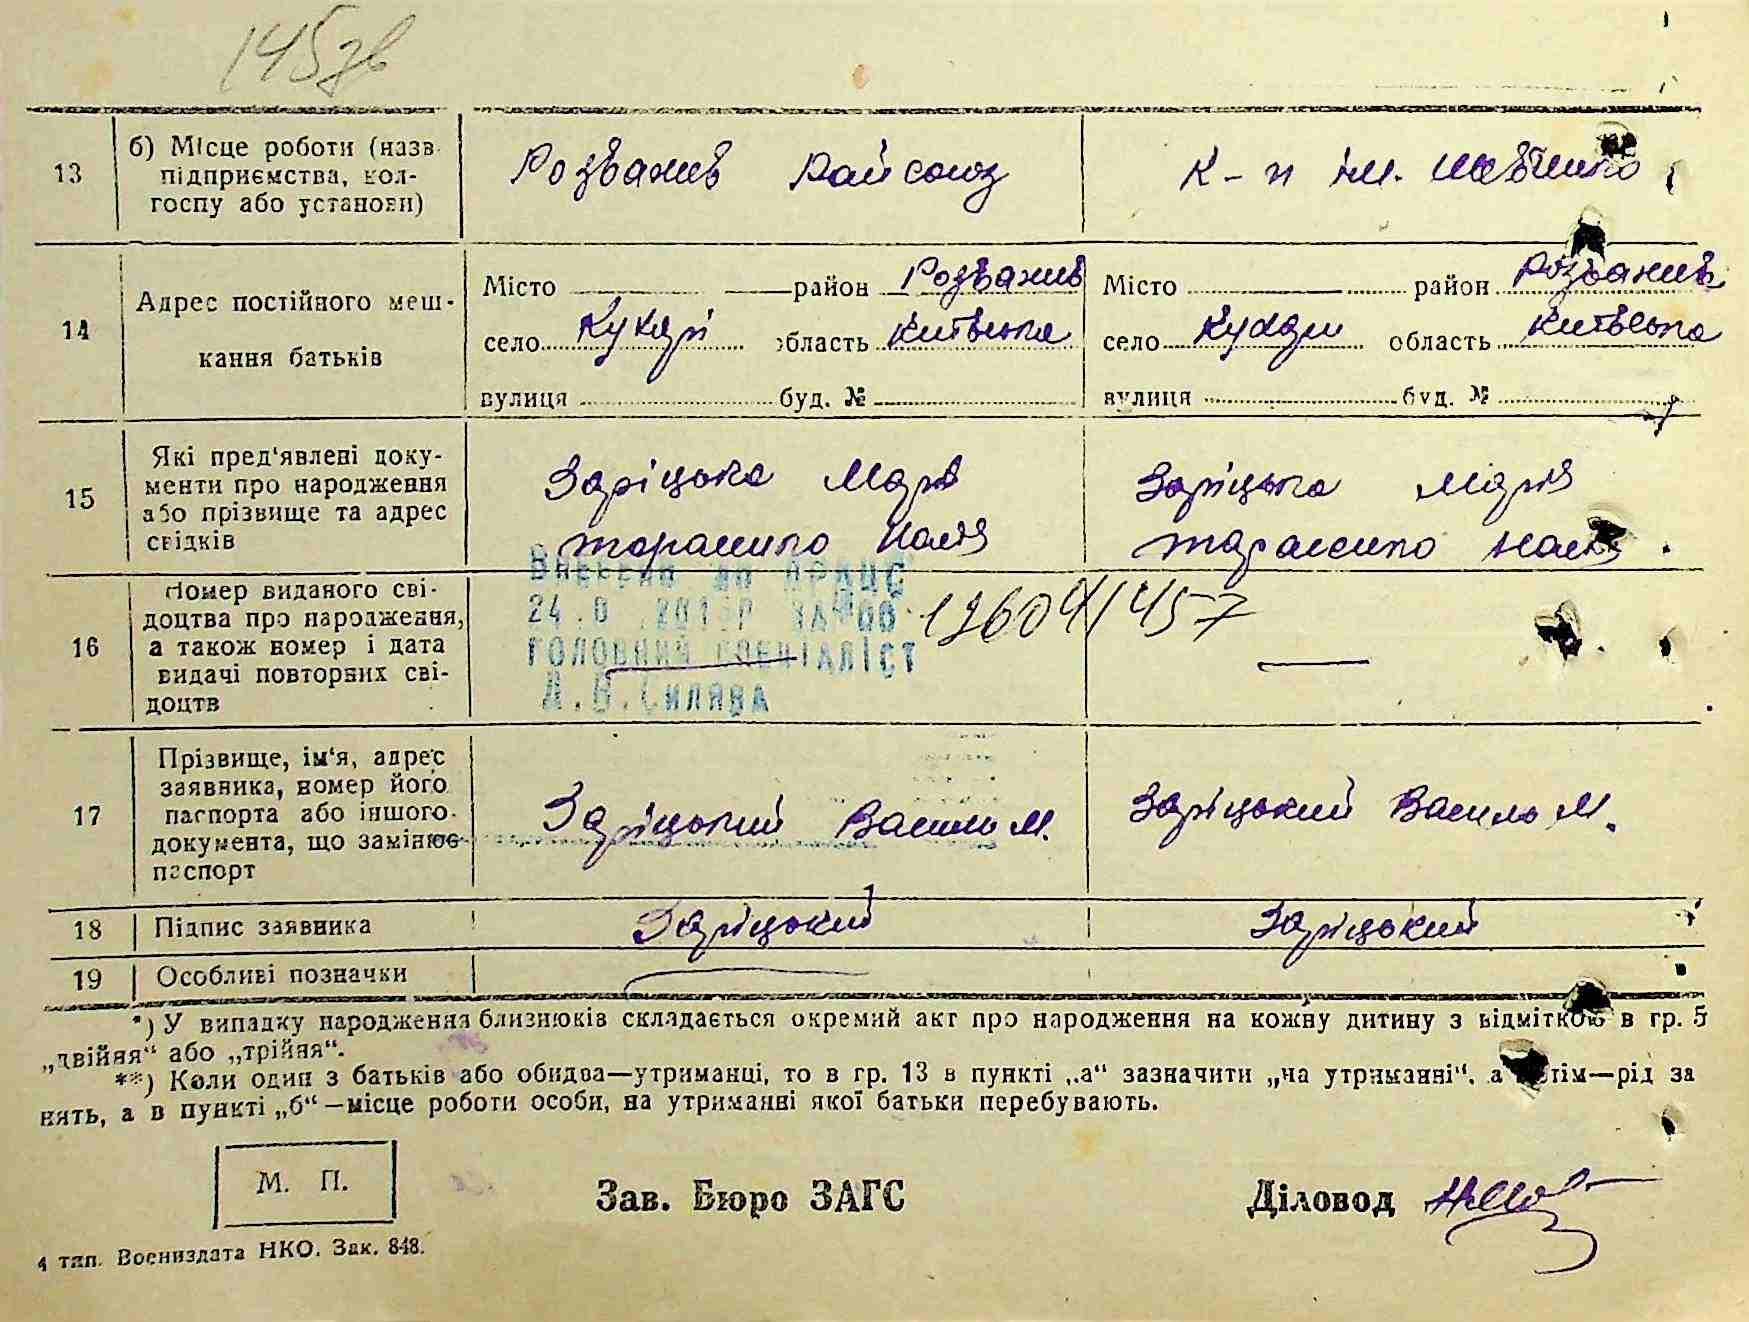 145зв
13
б) Місце роботи (назв
підприємства, кол-
госпу або установи)
Розважів Райсоюз
к-п ім. Шевченко
14
Адрес постійного меш-
кання батьків
Місто район Розважив
село Кухарі область Київська
вулиця буд. №
Місто район Розважив
село Кухари область Київська
вулиця буд. №
15
Які пред'явлені доку-
менти про народження
або прізвище та адрес
свідків
Заріцька Марія
Тарасенко Надія
Заріцька Марія
Тарасенко Надія
16
Номер виданого сві-
доцтва про народження,
а також номер і дата
видачі повторних сві-
доцтв
Внесено до ДРАЦС
ЗА №00 126041457
ГОЛОВНИЙ СПЕЦІАЛІСТ
17
Прізвище, ім'я, адрес
заявника, номер його
паспорта або іншого
документа, що замінює
паспорт
Заріцький Василь М.
Заріцький Василь М.
18
Підпис заявника
Заріцький
Заріцький
19
Особливі позначки
*) У випадку народження близнюків складається окремий акт про народження на кожну дитину з відміткою в гр. 5
„двійня“ або „трійня“.
**) Коли один з батьків або обидва—утриманці, то в гр. 13 в пункті „а“ зазначити „на утриманні“, а потім—рід за
нять, а в пункті „б“—місце роботи особи, на утриманні якої батьки перебувають.
М. П.
Зав. Бюро ЗАГС
Діловод
4 тип. Воениздата НКО. Зак. 848.